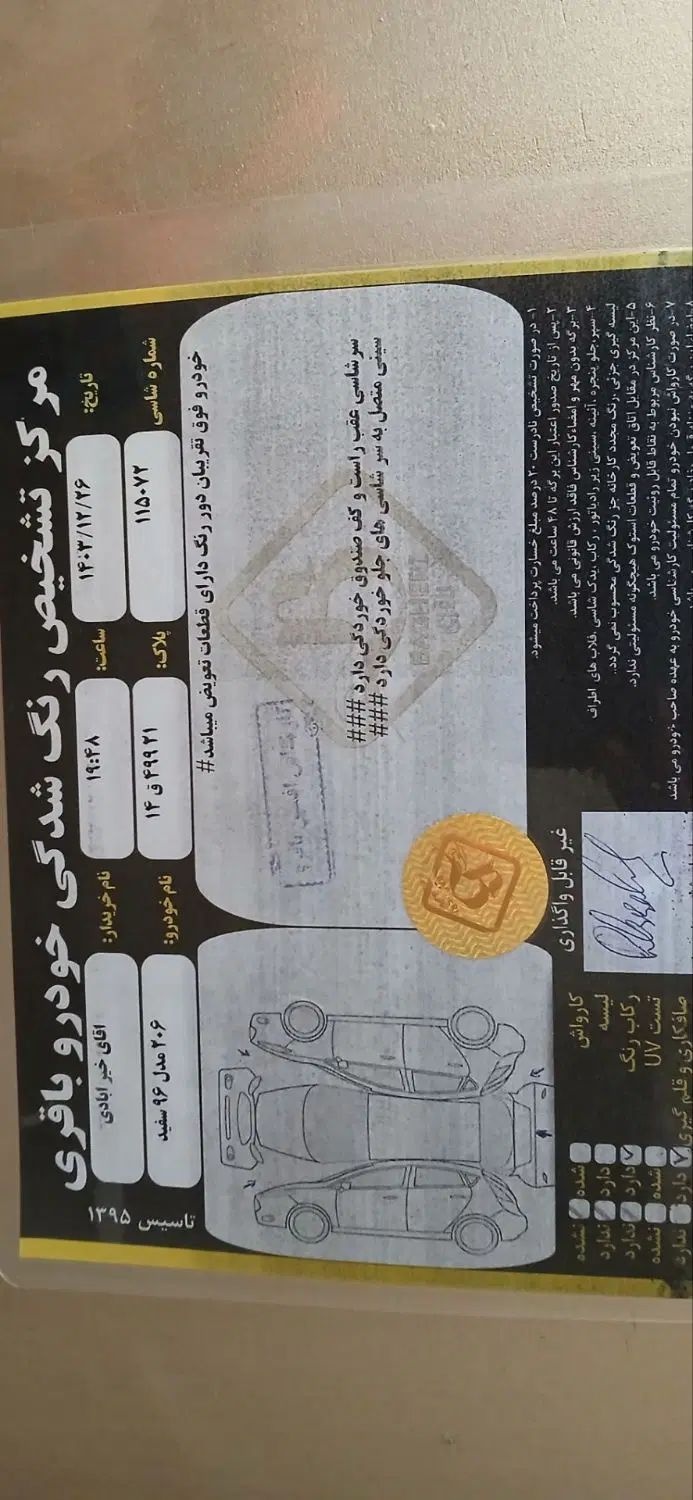 مرکز تشخیص رنگ شدگی خودرو باقری
تاسیس ۱۳۹۵
تاریخ: ۱۴۰۳/۱۲/۲۶
ساعت: ۱۹:۴۸
نام خریدار: اقای خیر ابادی
شماره شاسی ۱۱۵۰۷۲
پلاک: ۴۹۹۲۱ ق ۱۴
نام خودرو: ۲۰۶ مدل ۹۶ سفید
خودرو فوق تقریبان دور رنگ دارای قطعات تعویض میباشد#
سرشاسی عقب راست و کف صندوق خوردگی دارد ###
سینی متصل به سر شاسی های جلو خوردگی دارد ###
۱- در صورت تشخیص نادرست ۲۰ درصد مبلغ خسارت پرداخت میشود.
۲- پس از تاریخ صدور اعتبار این برگه تا ۴۸ ساعت می باشد.
۳- برگه بدون مهر و امضاء کارشناس فاقد ارزش قانونی می باشد.
۴- سپر، جلو پنجره، آئینه، سینی زیر رادیاتور، رکاب، یدک شاسی، قلاب های اطراف
لیسه گیری جزئی رنگ مجدد کارخانه جز رنگ شدگی محسوب نمی گردد.
۵- این مرکز در مقابل اتاق تعویض و قطعات استوک هیچگونه مسئولیتی ندارد.
۶- نظر کارشناس مربوط به نقاط قابل رویت خودرو می باشد.
۷- در صورت کارواش نبودن خودرو تمام مسئولیت کارشناسی خودرو به عهده صاحب خودرو می باشد
غیر قابل واگذاری
کارواش شده نشده
لیسه دارد ندارد
رکاب رنگ دارد ندارد
تست UV شده نشده
صافکاری و قلم گیری دارد ندارد